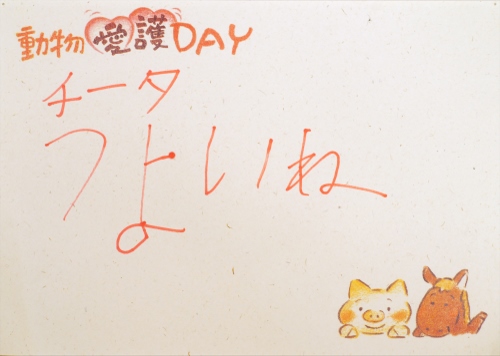 動物愛護DAY
チータ
つよいね